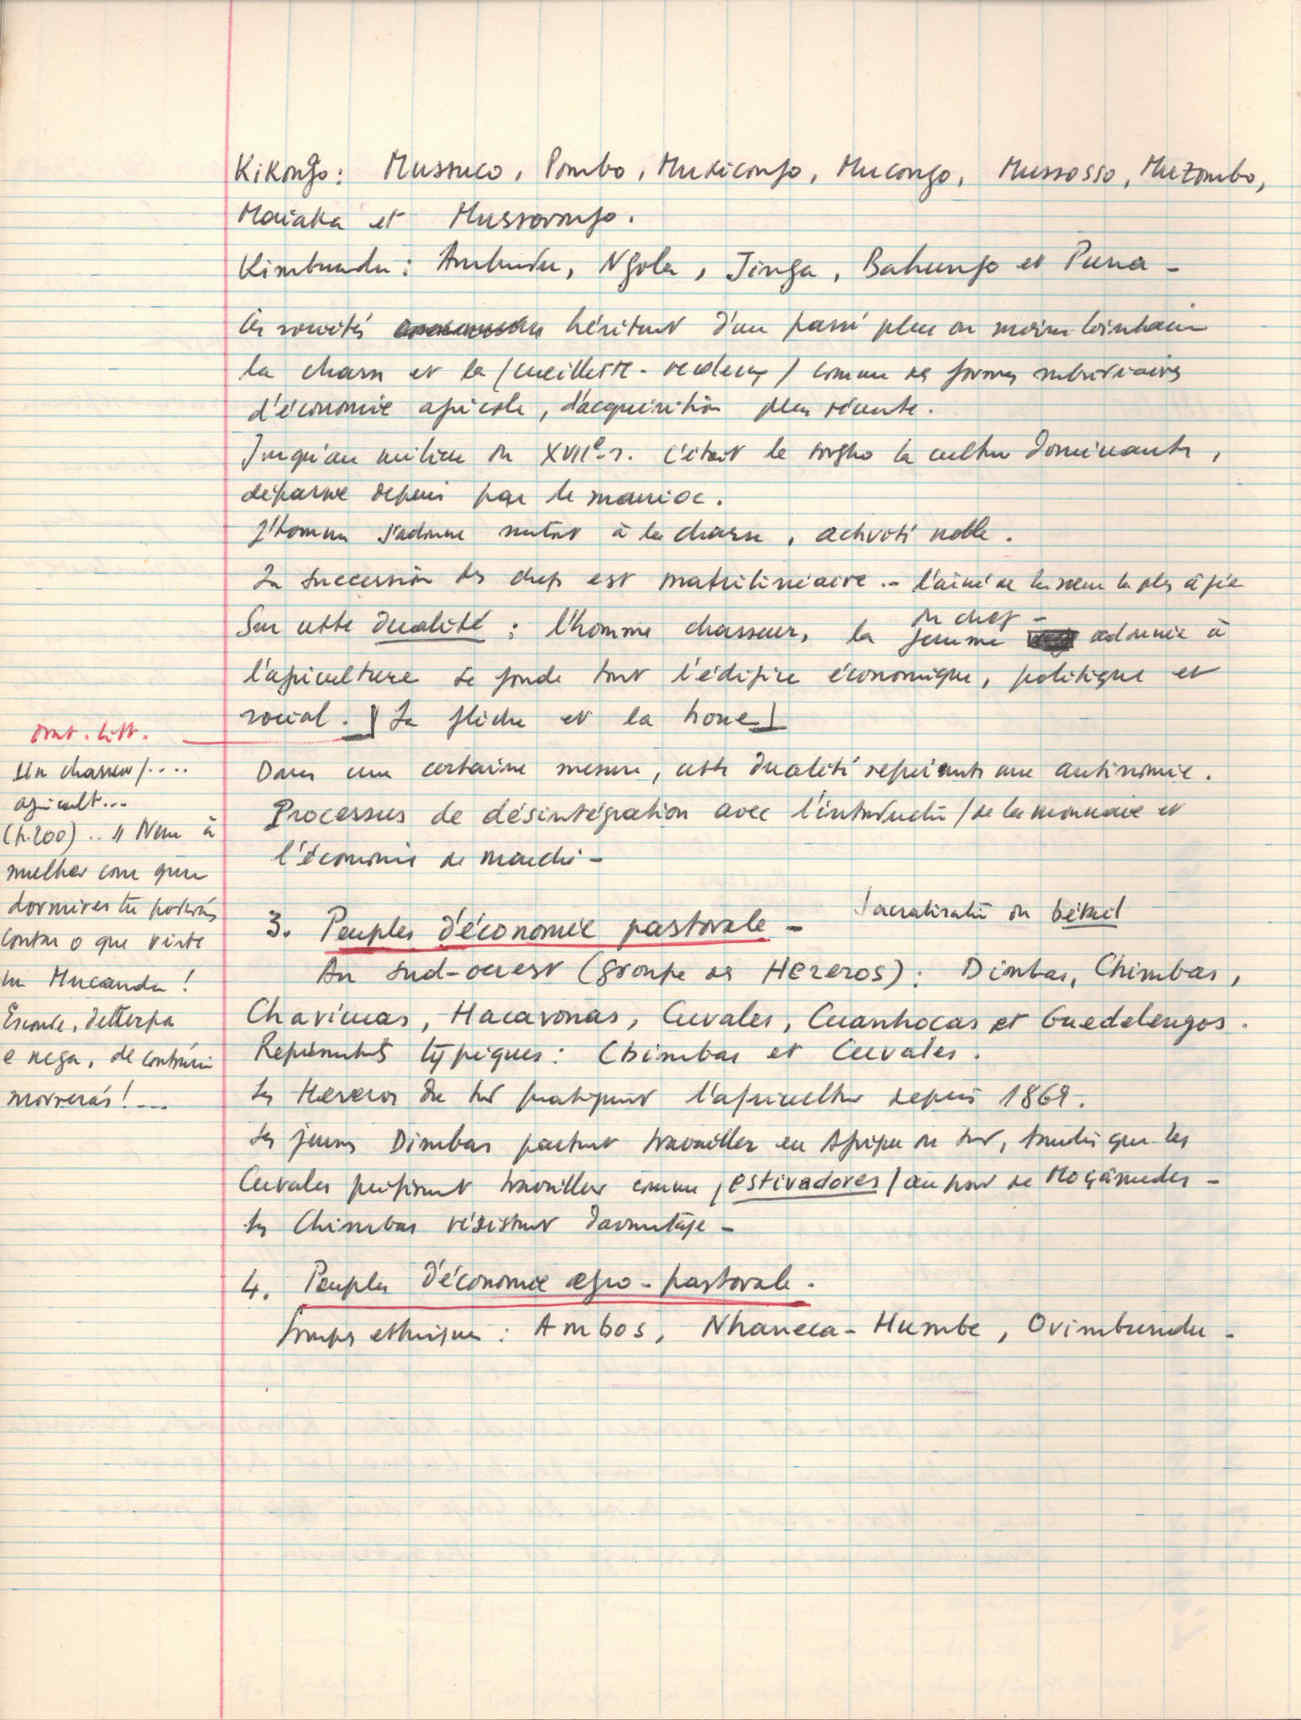 Kikongo: Mussuco, Pombo, Muxicongo, Mucongo, Mussosso, Muzombo,
Maiaka et Mussorongo.
Kimbundu: Ambundu, Ngola, Jinga, Bahungo et Puna -
Ces sociétés héritent d'un passé plus ou moins lointain
la chasse et la / cueillette - / comme des formes subsidiaires
d'économie agricole, d'acquisition plus récente.
Jusqu'au milieu du XVIIe s. c'était le sorgho la culture dominante,
dépassé depuis par le manioc.
L'homme s'adonne surtout à la chasse, activité noble.
La succession des chefs est matrilinéaire. - l'aîné de la soeur la plus âgée
du chef -
Sur cette dualité : l'homme chasseur, la femme adonnée à
l'agriculture se fonde tout l'édifice économique, politique et
social. La flèche et la houe
Dans une certaine mesure, cette dualité représente une antinomie.
Processus de désintégration avec l'introducti / de la monnaie et
l'économie de marché -
orat. litt.
Un chasseur / ....
agricult...
(p. 200) .. " Nem à
mulher com quem
dormires tu poderás
contar o que viste
na Mucanda !
Esconde,
e nega, de contrário
morrerás! ...
3. Peuples d'économie pastorale - Sacralisati du bétail
Au sud-ouest (groupe des Hereros) : Dimbas, Chimbas,
Chavicuas, Hacavonas, Cuvales, Cuanhocas et Guedelengos.
Représentants typiques : Chimbas et Cuvales.
Les Hereros du sud pratiquent l'agriculture depuis 1869.
Les jeunes Dimbas partent travailler en Afrique du sud, tandis que les
Cuvales préfèrent travailler comme / estivadores / au port de Moçâmedes -
Les Chimbas résistent davantage -
4. Peuples d'économie agro-pastorale.
Groupes ethniques : Ambos, Nhaneca-Humbe, Ovimbundu -